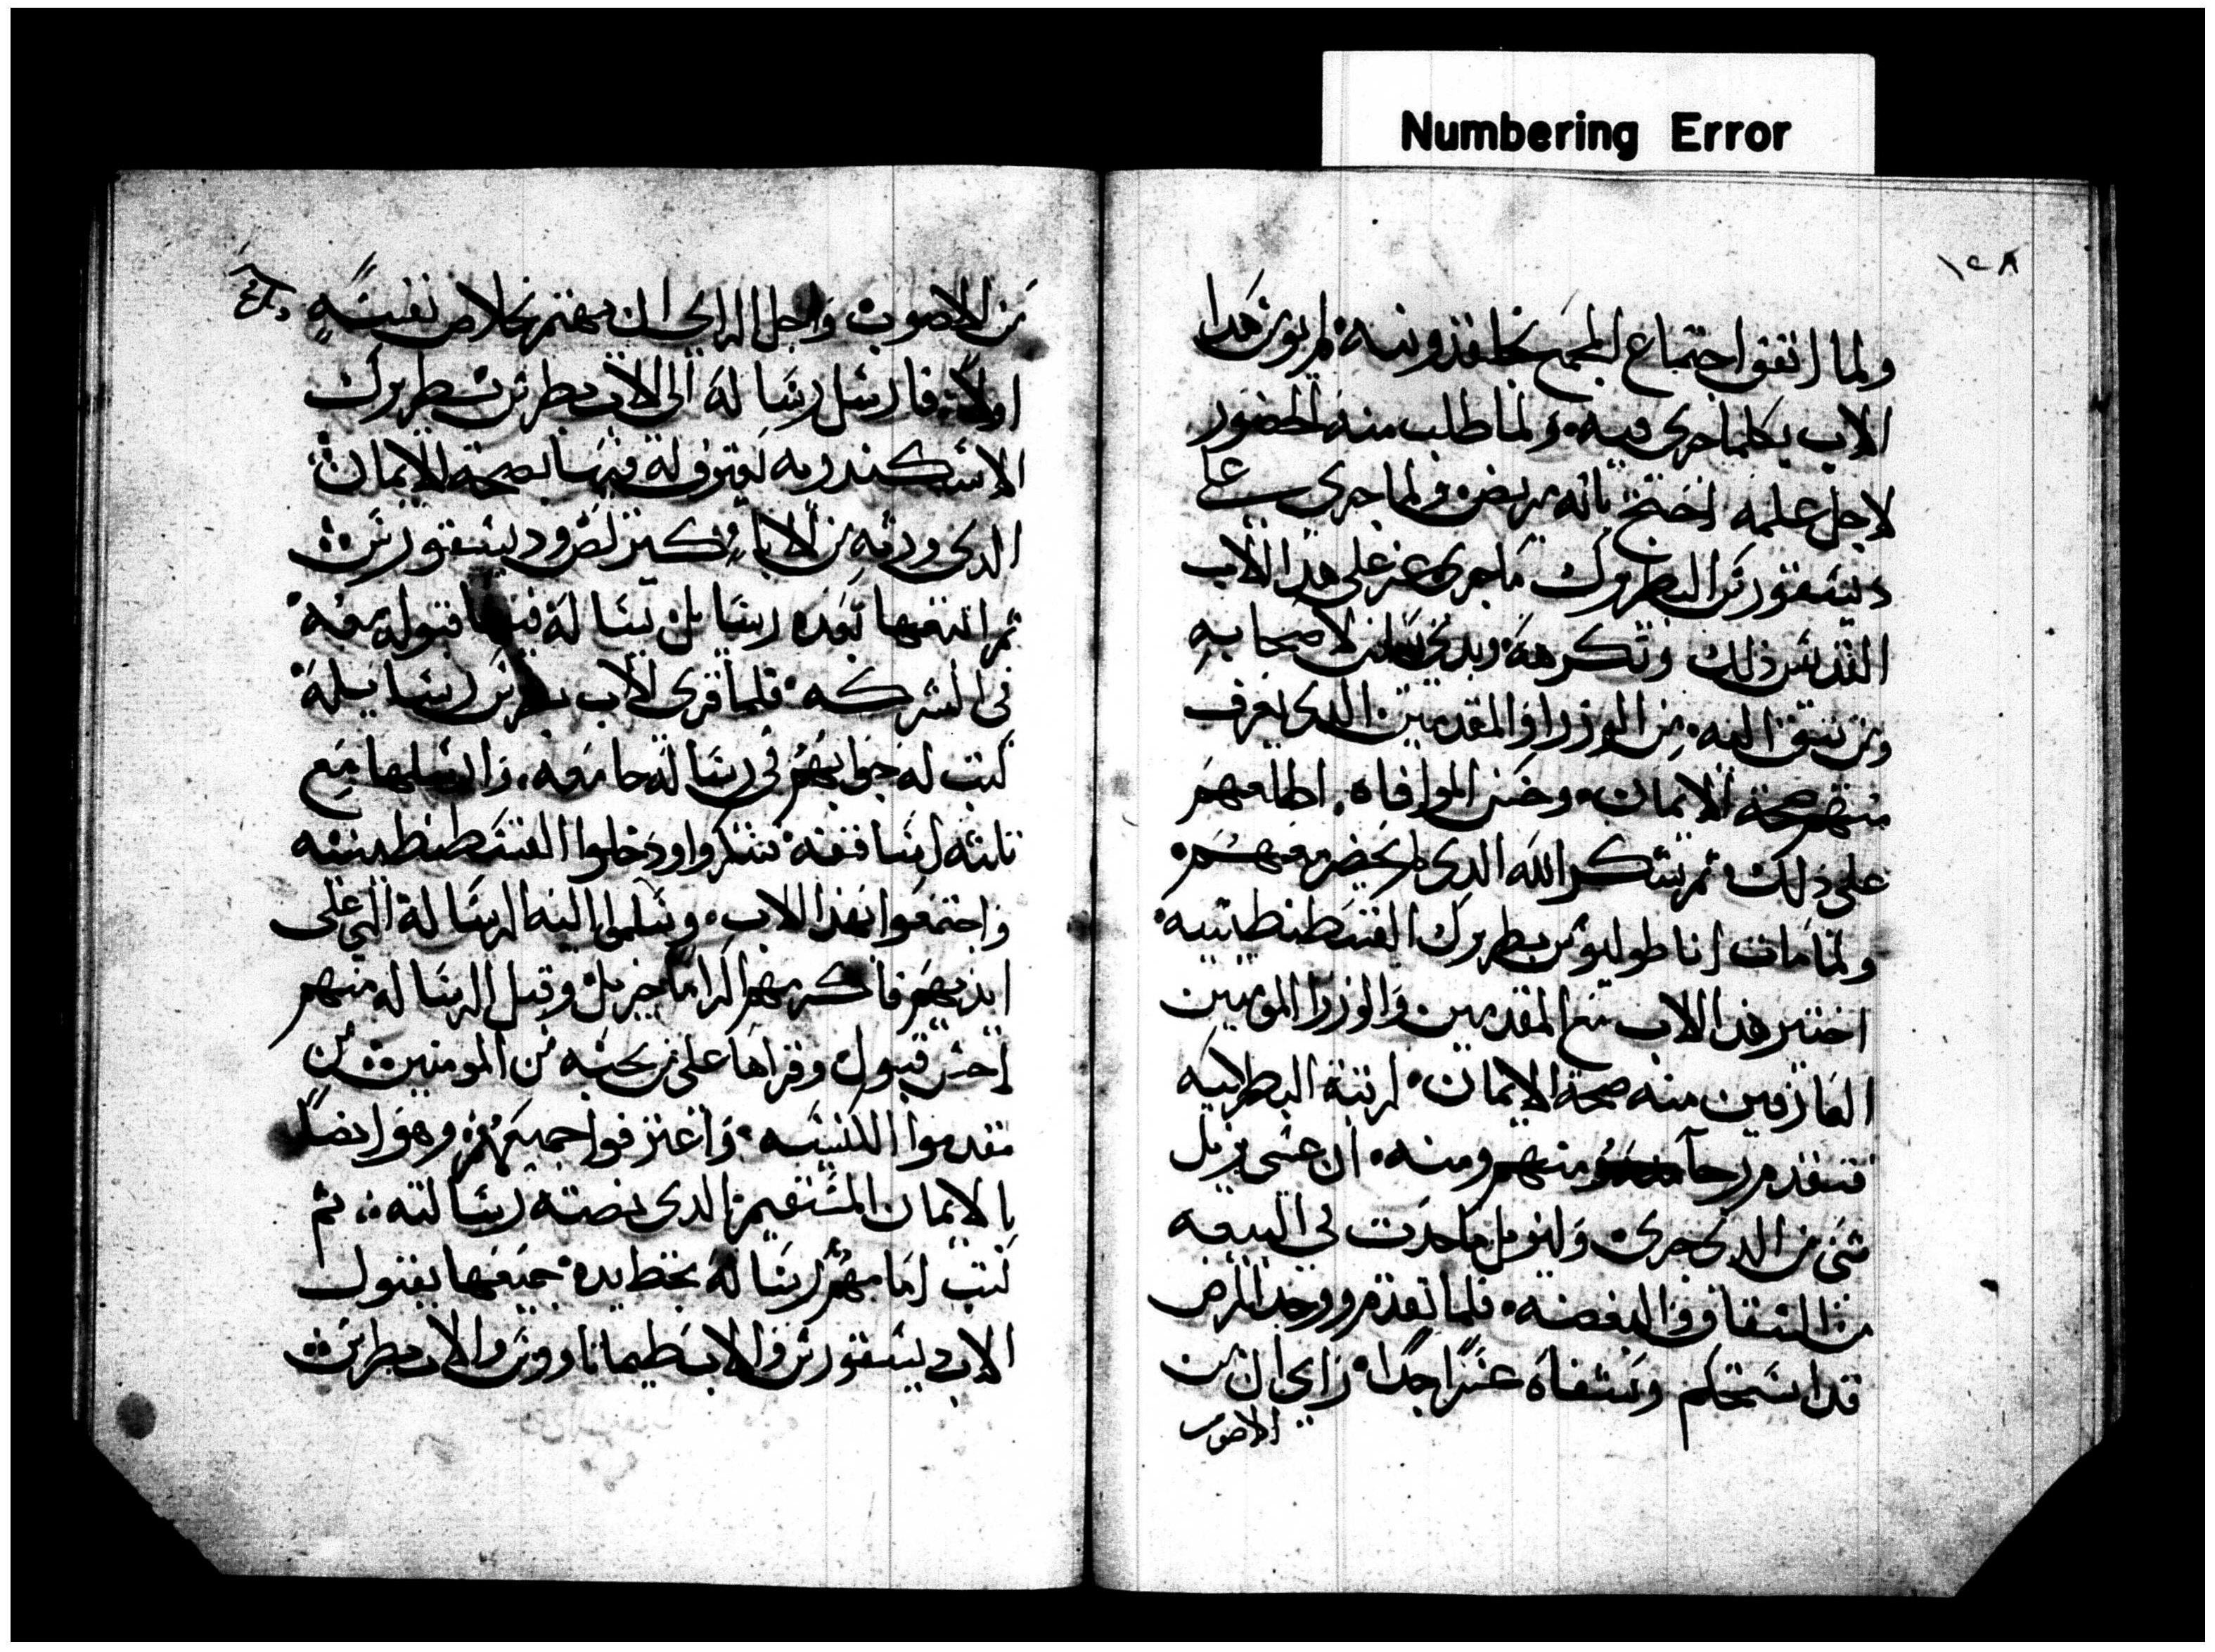 Numbering Error
١٢٨
ولما اتفق اجتماع المجمع بخلقدونيه لم يوثر هدا
الاب بكلما جرى فيه ولما طلب منه الحضور
لاجل علمه احتج بانه مريض ولما جرى على
ديسقورس البطريرك ما جرى عز على هدا الاب
القديس ذلك وتكرهه وبدي لاصحابه
ومن يثق اليه من الوزرا والمقدمين الدي يعرف
منهم صحة الايمان وحسن الموافاه اطلعهم
على ذلك ثم يشكر الله الدي لم يحضر معهم
ولما مات اناطوليوس بطريرك القسطنطينيه
اختير هدا الاب من المقدمين والوزرا المومنين
العارفين منه صحة الايمان لرتبة البطركيه
فتقدم رجآ منهم ومنه ان عسى يزيل
شى من الدي جرى ويزيل ما حدث في البيعه
من الشقاق والبغضه فلما تقدم ووجد المرض
قد استحكم وشفاه عسرا جدا راى ان من
الاصوب
من الاصوب واجل الراى ان يهتم بخلاص نفسه
اولا فارسل رساله الى الاب بطرس بطريرك
الاسكندريه يعترف له فيها بصحة الايمان
الدي ورثه من الابا كيرلص وديسقورس
ثم اتبعها بعده رسايل يساله فيها قبوله معه
في الشركه فلما قرى الاب بطرس رسايله
كتب له جوابهم في رساله جامعه وارسلها مع
ثلثه اساقفه فتنكروا ودخلوا القسطنطينيه
واجتمعوا بهدا الاب وسلموا اليه الرساله التي على
ايديهم فاكرمهم اكراما جزيل وقبل الرساله منهم
احسن قبول وقراها على من بحسه من المومنين من
مقدموا الكنيسه واعترفوا جميعهم وهو ايضا
بالايمان المستقيم الدي نصته رسالته ثم
كتب امامهم رساله بخط يده جميعها بقبول
الاب ديسقورس والاب طيماتاووس والاب بطرس